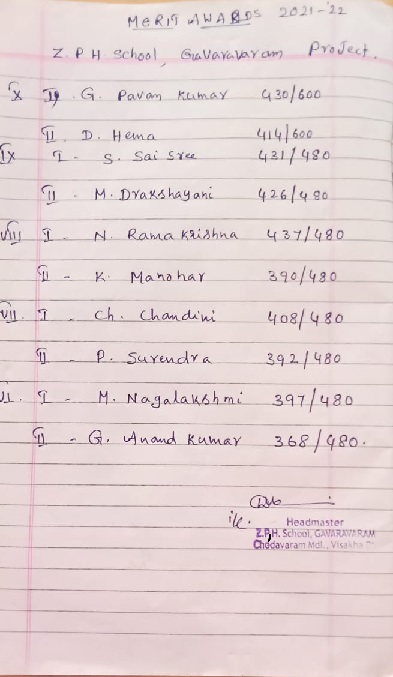 MERIT AWARDS 2021-'22
Z.P.H School, Gavaravaram Project.
X I G. Pavan Kumar 430/600
II. D. Hema 414/600
IX I - S. Sai Sree 431/480
II - M. Drakshayani 426/480
VIII I - N. Rama Krishna 437/480
II - K. Manohar 390/480
VII. I - Ch. Chandini 408/480
II - P. Surendra 392/480
VI. I - M. Nagalakshmi 397/480
II - G. Anand Kumar 368/480.
Headmaster
Z.P.H. School, GAVARAVARAM
Chodavaram Mdl., Visakha